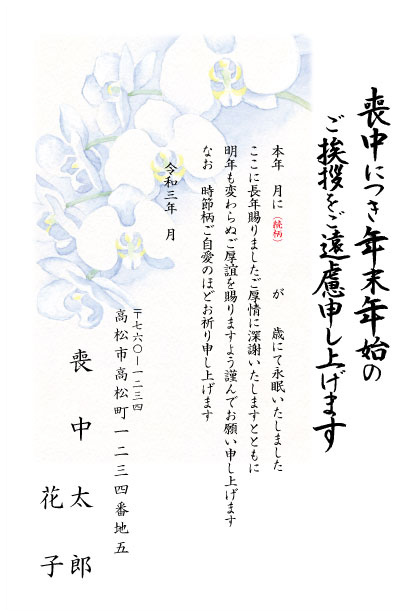 喪中につき年末年始の
ご挨拶をご遠慮申し上げます
本年　月に（続柄）　　が　歳にて永眠いたしました
ここに長年賜りましたご厚情に深謝いたしますとともに
明年も変わらぬご厚誼を賜りますよう謹んでお願い申し上げます
なお　時節柄ご自愛のほどお祈り申し上げます
令和三年　月
〒七六〇－一二三四
高松市高松町一二三四番地五
喪中太郎
花子